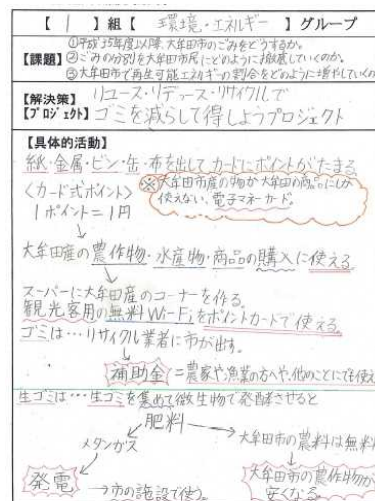 【 1 】組【 環境・エネルギー 】グループ
【課題】①平成35年度以降、大牟田市のごみをどうするか。
②ごみの分別を大牟田市民にどのように徹底していくのか。
③大牟田市で再生可能エネルギーの割合をどのように増やしていくの
【解決策】リユース・リデュース・リサイクルで
【プロジェクト】ゴミを減らして得しようプロジェクト
【具体的活動】
紙・金属・ビン・缶・布を出してカードにポイントがたまる
〈カード式ポイント〉
1ポイント=1円
※大牟田市産の物か大牟田の商品にしか
使えない、電子マネーカード。
↓
大牟田産の農作物・水産物・商品の購入に使える
↓
スーパーに大牟田産のコーナーを作る。
観光客用の無料Wi-Fiをポイントカードで使える。
ゴミは…リサイクル業者に市が出す。
↓
補助金=農家や漁業の方へや、他のことにでも使え
生ゴミは…生ゴミを集めて微生物で発酵させると
肥料
メタンガス
大牟田市の農料は無料
発電
→市の施設で使う。
大牟田市の農作物が
安くなる